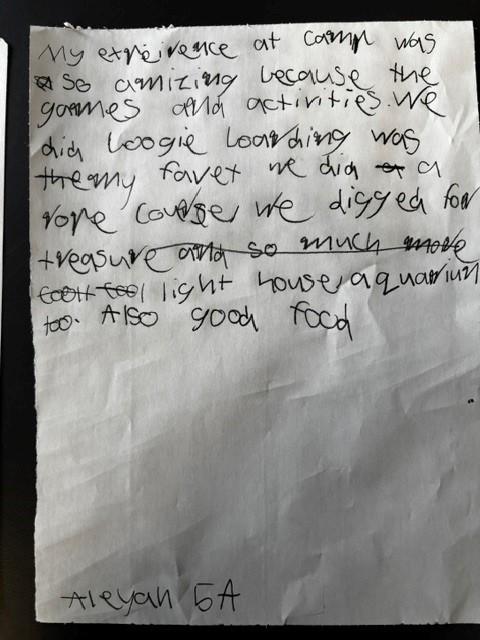 My expreirence at camp was
so amizing because the
games and activities. We
did boogie boarding was
the my favet we did a
rope course, we digged for
treasure and so much more
light house, aquarium
too. Also good food
Aleyah 5A